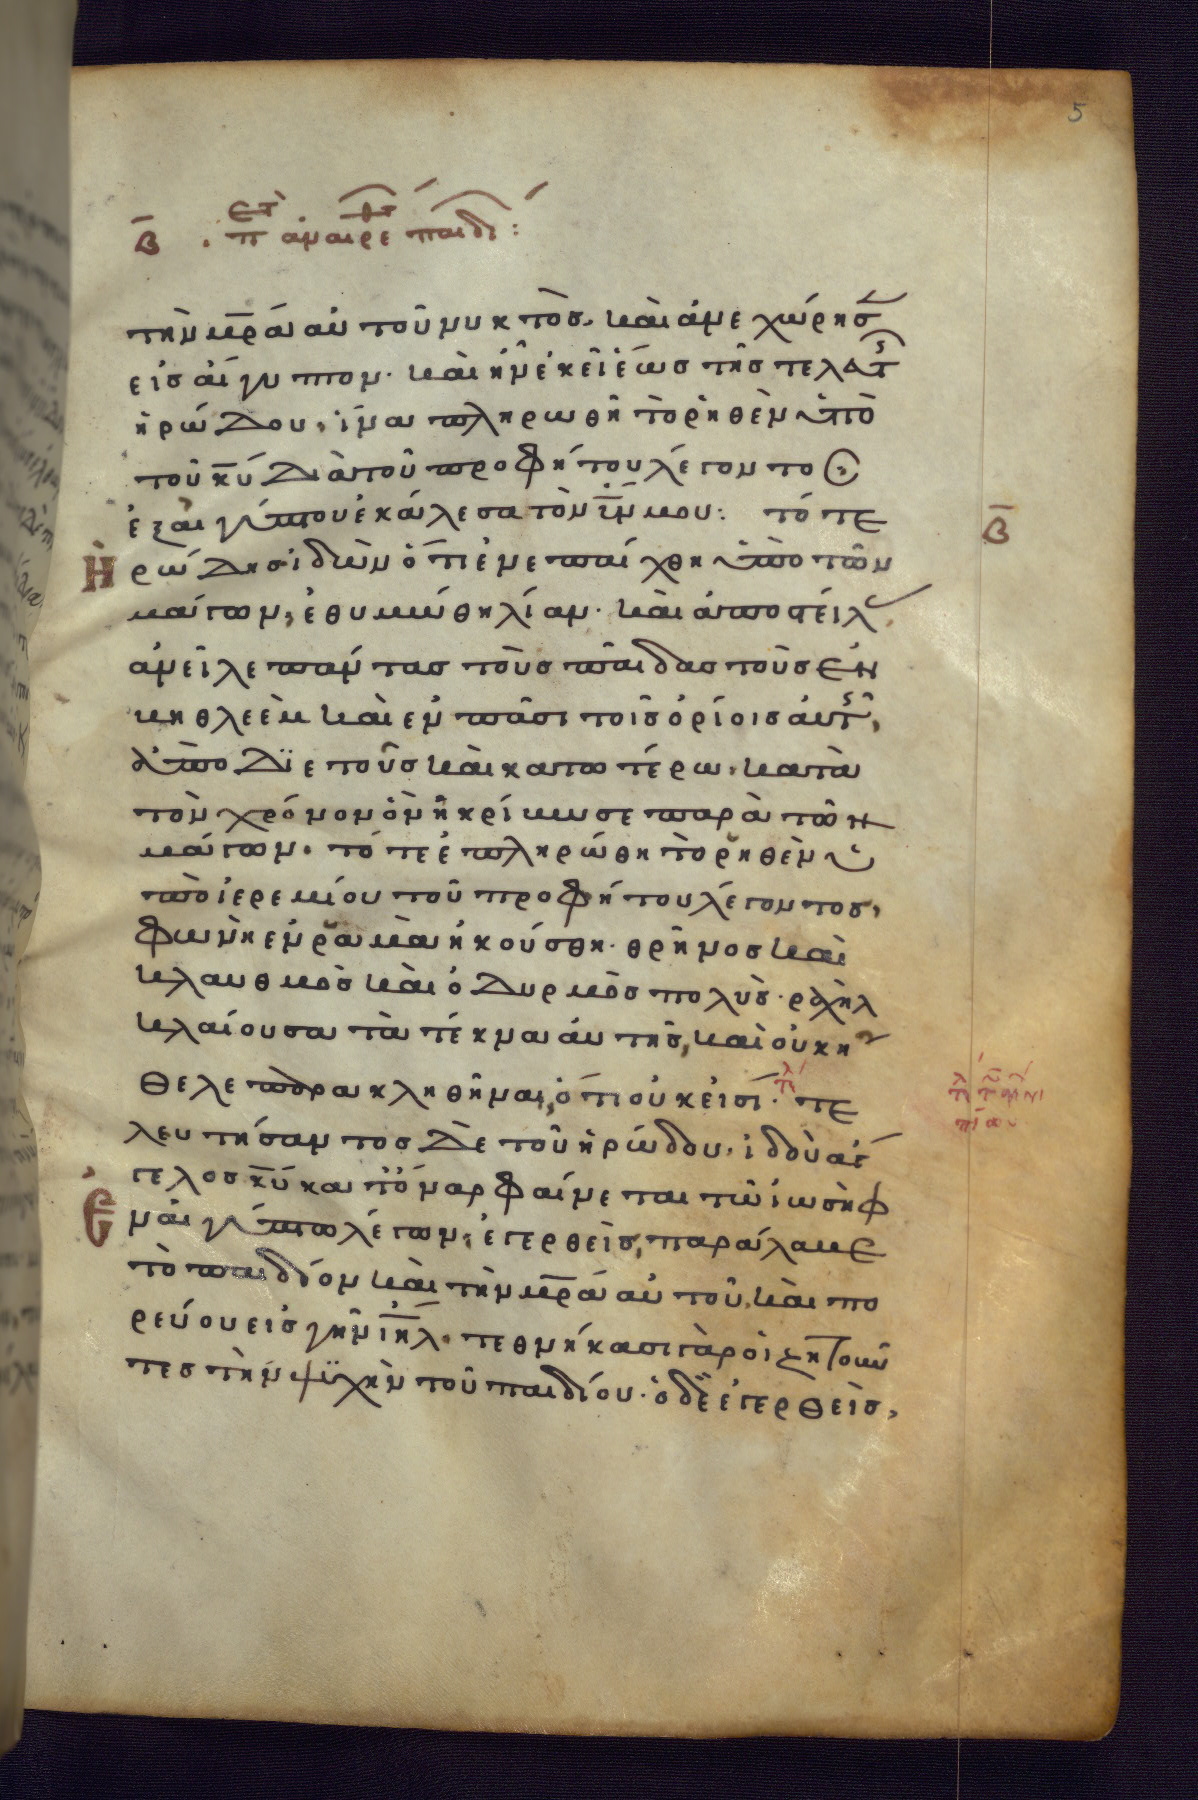 5
Β̅ . π ἀναιρε παιδι :
τὴν μ̅ρ̅α αὐτοῦ νυκτὸς. καὶ ἀνεχώρησ
εἰς αἴγυπτον. καὶ ἦν ἐκεῖ ἕως τῆς τελευτ
ἡρώδου. ἵνα πληρωθῆ τὸ ῥηθὲν ὑπὸ
τοῦ κ̅υ̅ διὰ τοῦ προφήτου λέγοντος
ἐξ αἰγύπτου ἐκάλεσα τὸν υ̅ν̅ μου: τότε
Β̅
Ἡρώδης ἰδὼν ὅτι ἐνεπαίχθη ὑπὸ τῶν
μάγων, ἐθυμώθη λίαν. καὶ ἀποστείλ
ἀνεῖλε πάντας τοὺς παῖδας τοὺς ἐν
βηθλεὲμ καὶ ἐν πᾶσι τοῖς ὁρίοις αὐτ,
ἀπὸ διετοῦς καὶ κατωτέρω. κατὰ
τὸν χρόνον ὃν ἠκρίβωσε παρὰ τῶν
μάγων. τότε ἐπληρώθη τὸ ῥηθὲν ὑ
πὸ ἱερεμίου τοῦ προφήτου λέγοντος,
φωνὴ ἐν ῥαμὰ ἠκούσθη. θρῆνος καὶ
κλαυθμὸς καὶ ὀδυρμὸς πολύς. ραχὴλ
κλαίουσα τὰ τέκνα αὐτῆς, καὶ οὐκ ἤ
θελε παρακληθῆναι, ὅτι οὐκ εἰσί. τε
λευτήσαντος δὲ τοῦ ἡρώδου. ἰδοὺ ἄγ
γελος κ̅υ̅ κατ' ὄναρ φαίνεται τῶ ἰωσὴφ
ἐν αἰγύπτω λέγων, ἐγερθεὶς, παράλαβε
τὸ παιδίον καὶ τὴν μ̅ρ̅α αὐτοῦ, καὶ πο
ρεύου εἰς γῆν ι̅η̅λ̅. τεθνήκασι γὰρ οἱ ζητοῦν
τες τὴν ψυχὴν τοῦ παιδίου. ὁ δὲ ἐγερθεὶς,